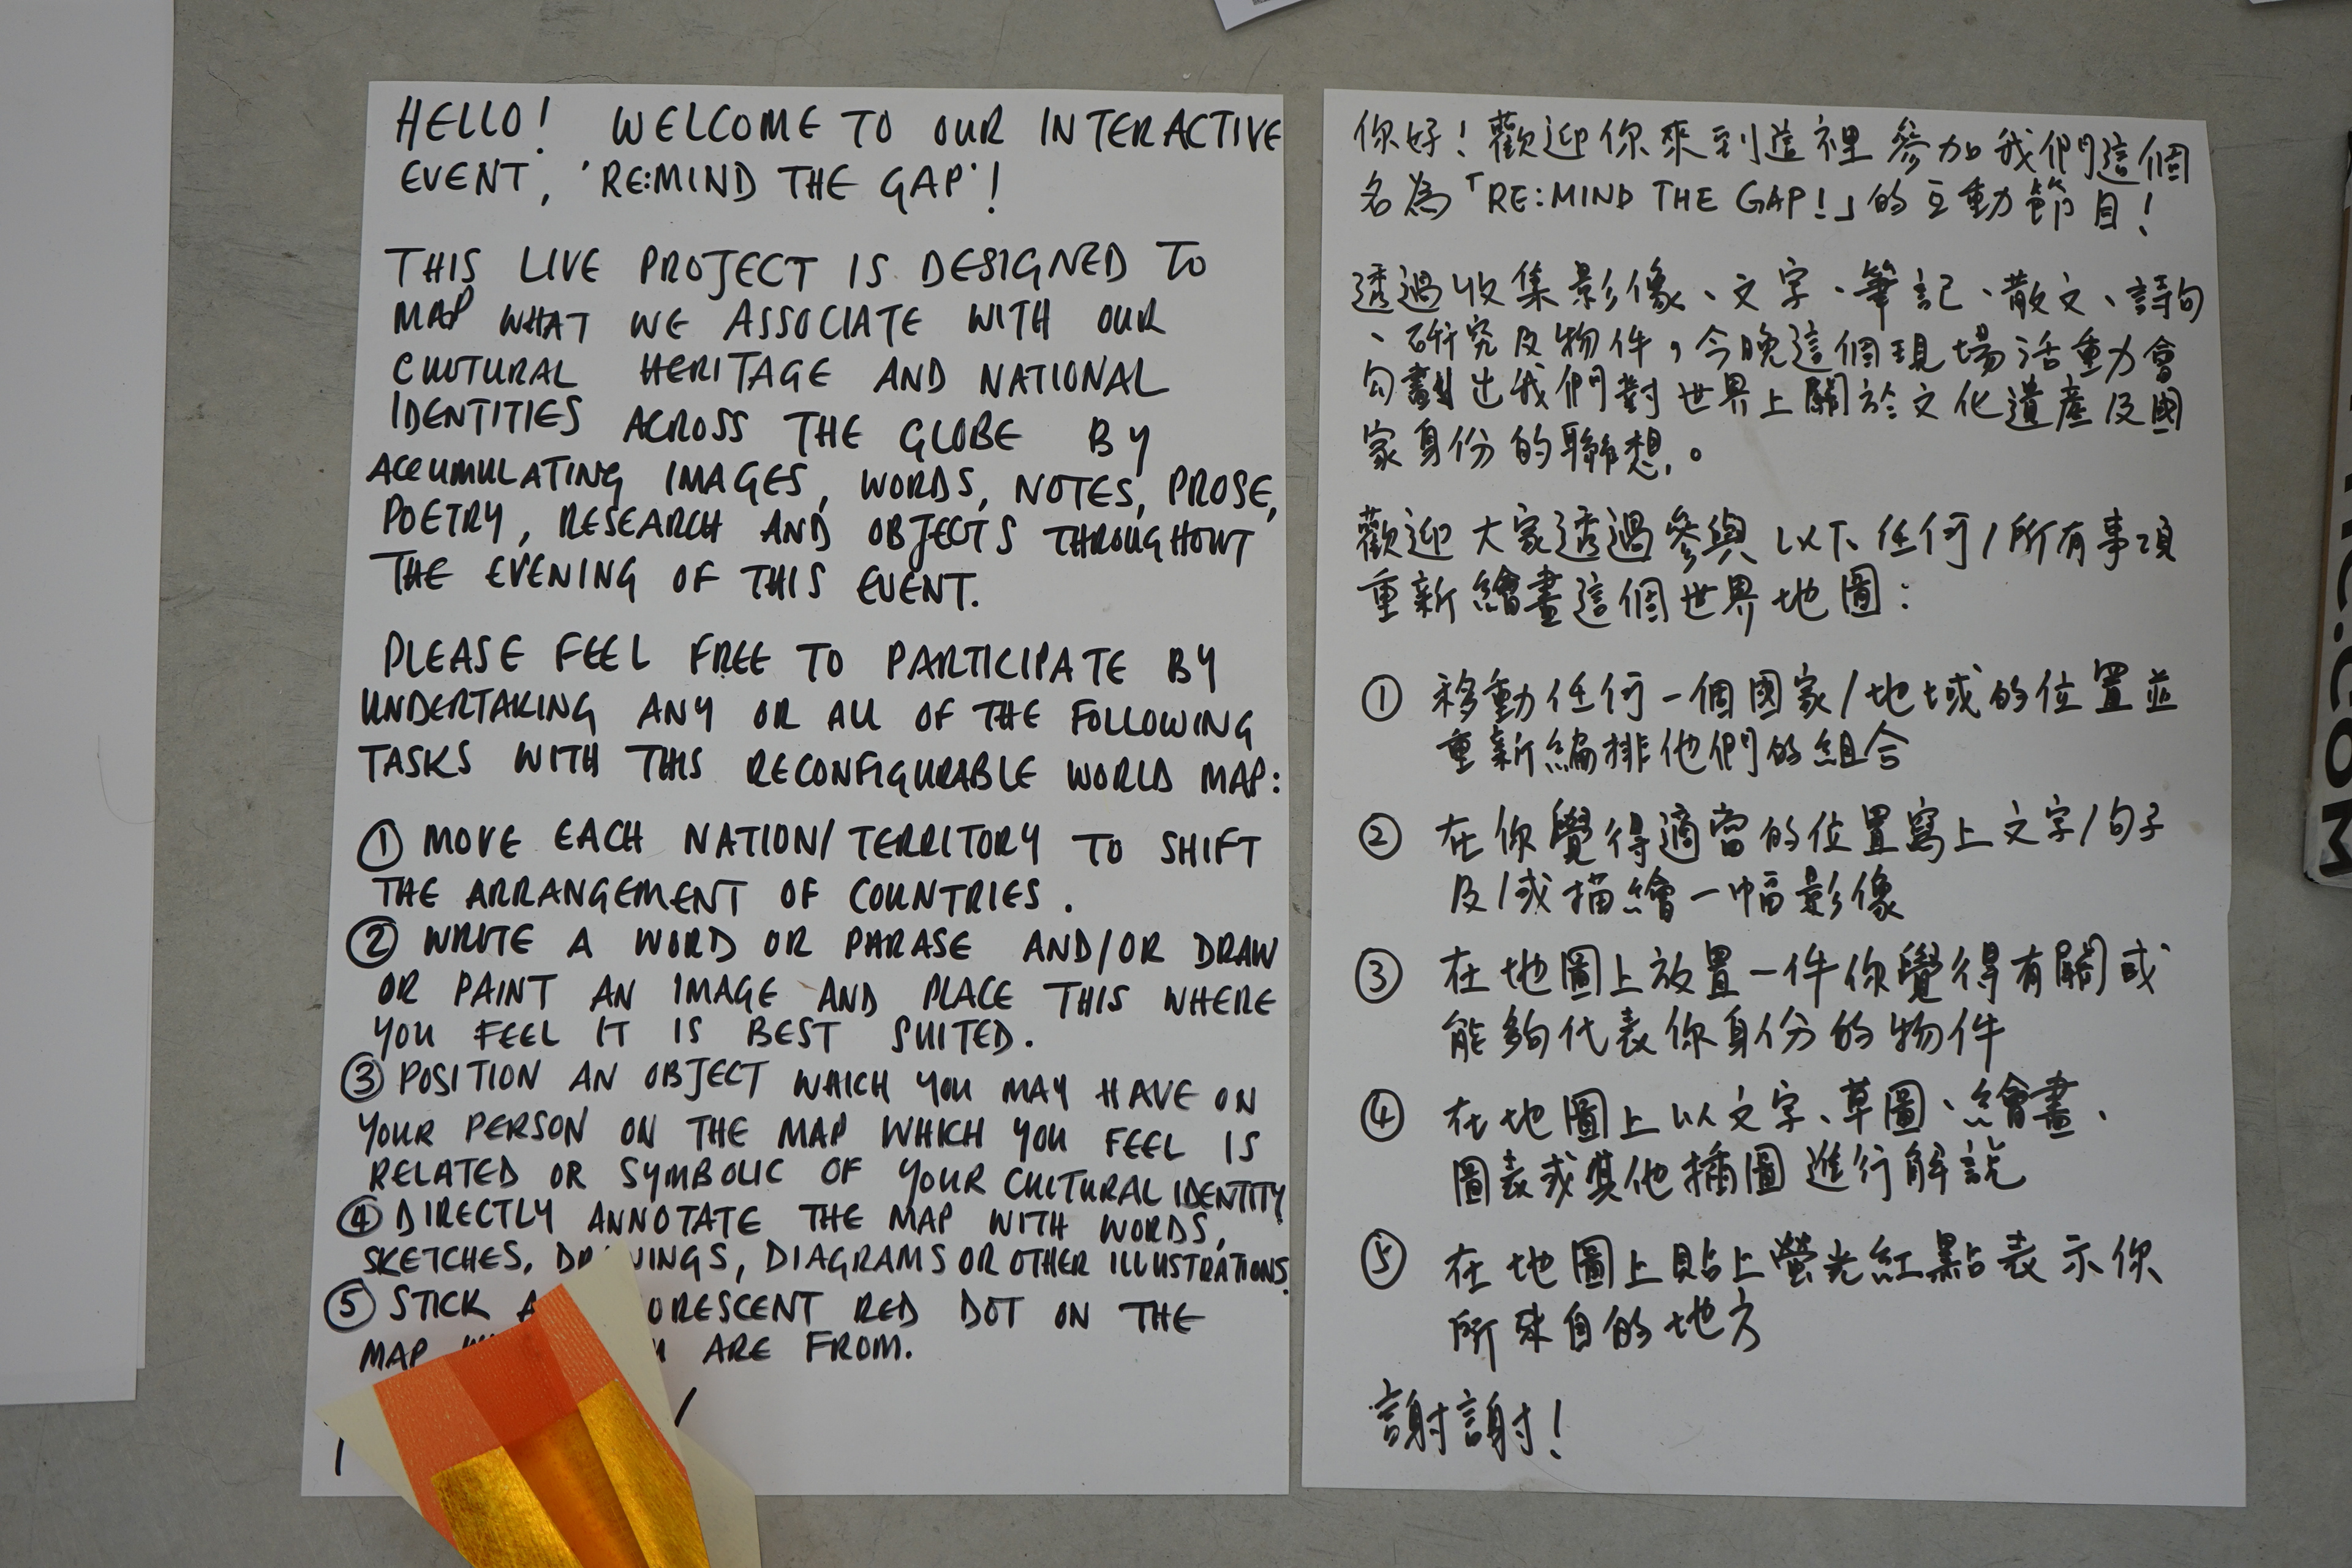 HELLO! WELCOME TO OUR INTERACTIVE
EVENT, 'RE:MIND THE GAP'!
THIS LIVE PROJECT IS DESIGNED TO
MAP WHAT WE ASSOCIATE WITH OUR
CULTURAL HERITAGE AND NATIONAL
IDENTITIES ACROSS THE GLOBE BY
ACCUMULATING IMAGES, WORDS, NOTES, PROSE,
POETRY, RESEARCH AND OBJECTS THROUGHOUT
THE EVENING OF THIS EVENT.
PLEASE FEEL FREE TO PARTICIPATE BY
UNDERTAKING ANY OR ALL OF THE FOLLOWING
TASKS WITH THIS RECONFIGURABLE WORLD MAP:
① MOVE EACH NATION/TERRITORY TO SHIFT
THE ARRANGEMENT OF COUNTRIES.
② WRITE A WORD OR PHRASE AND/OR DRAW
OR PAINT AN IMAGE AND PLACE THIS WHERE
YOU FEEL IT IS BEST SUITED.
③ POSITION AN OBJECT WHICH YOU MAY HAVE ON
YOUR PERSON ON THE MAP WHICH YOU FEEL IS
RELATED OR SYMBOLIC OF YOUR CULTURAL IDENTITY
④ DIRECTLY ANNOTATE THE MAP WITH WORDS,
SKETCHES, DIAGRAMS OR OTHER ILLUSTRATIONS.
⑤ STICK RED DOT ON THE
MAP ARE FROM.
你好！歡迎你來到這裡參加我們這個
名為「RE:MIND THE GAP!」的互動節目！
透過收集影像、文字、筆記、散文、詩句
、研究及物件，今晚這個現場活動會
勾劃出我們對世界上關於文化遺產及國
家身份的聯想。
歡迎大家透過參與以下任何/所有事項
重新繪畫這個世界地圖：
① 移動任何一個國家/地域的位置並
重新編排他們的組合
② 在你覺得適當的位置寫上文字/句子
及/或描繪一幅影像
③ 在地圖上放置一件你覺得有關或
能夠代表你身份的物件
④ 在地圖上以文字、草圖、繪畫、
圖表或其他插圖進行解說
⑤ 在地圖上貼上螢光紅點表示你
所來自的地方
謝謝！
.COM